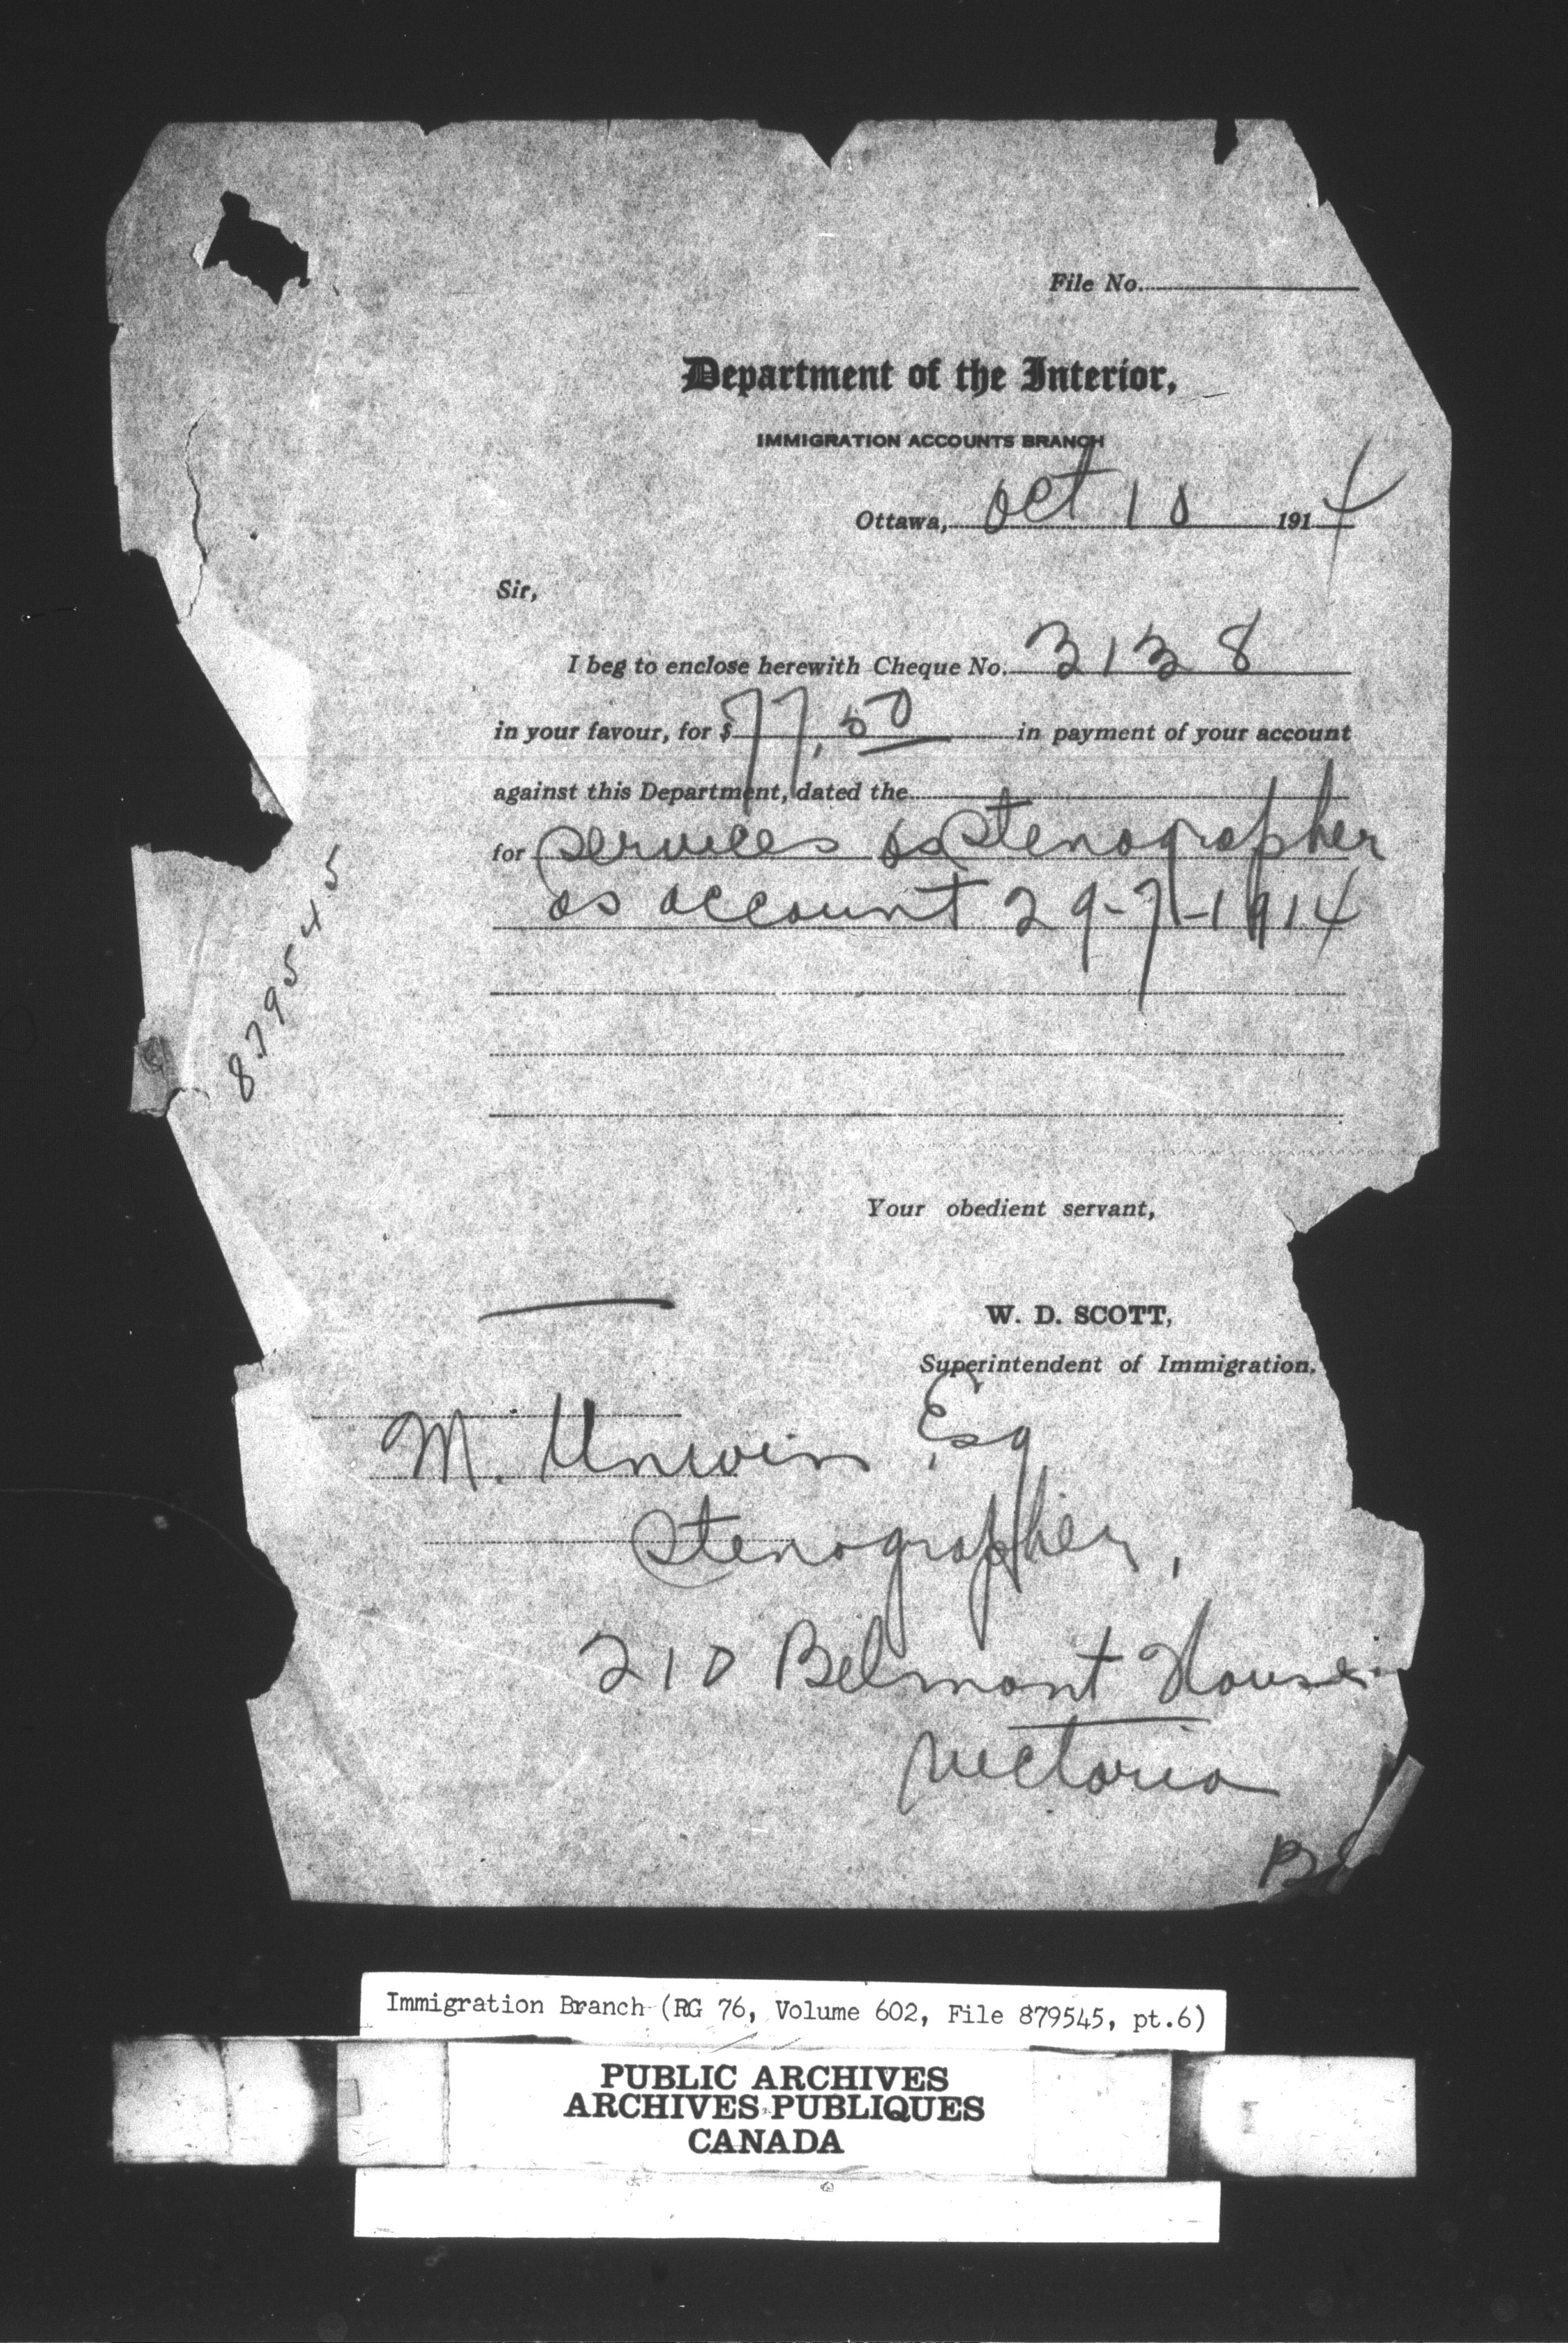 File No.
Department of the Interior,
IMMIGRATION ACCOUNTS BRANCH
Ottawa, Oct 10 1914
Sir,
I beg to enclose herewith Cheque No. 3138
in your favour, for $77.50 in payment of your account
against this Department, dated the
for services as Stenographer
as account 29-7-1914
879545
Your obedient servant,
W. D. SCOTT,
Superintendent of Immigration.
M. Unwin Esq
Stenographer,
210 Belmont House
Victoria
Immigration Branch (RG 76, Volume 602, File 879545, pt.6)
PUBLIC ARCHIVES
ARCHIVES PUBLIQUES
CANADA